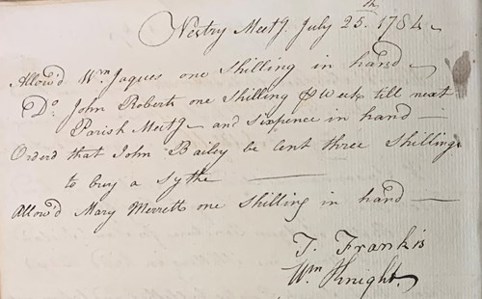 Vestry Meetg. July 25th. 1784
Allow'd Wm Jaques one Shilling in hand
Do. John Roberts one Shilling ⅌ Week till next
Parish Meetg and Sixpence in hand
Orderd that John Bailey be lent three Shillings
to buy a Sythe
Allow'd Mary Merrett one Shilling in hand
T. Frankis
Wm Knight